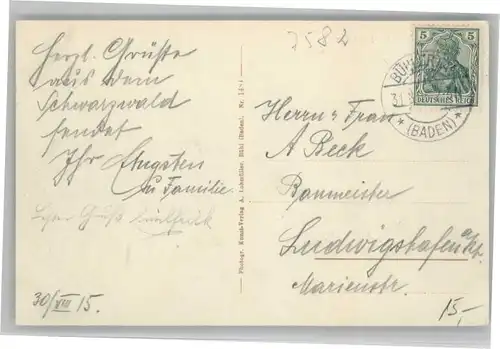 7582
Herzl. Grüße
aus dem
Schwarzwald
sendet
Ihr Angsten
u Familie.
Gruß
30/VIII 15.
Photogr. Kunst-Verlag A. Lahmüller, Bühl (Baden).
5 5
DEUTSCHES REICH
31
* (BADEN) *
Herrn u Frau
A Beck
Baumeister
Ludwigshafen a/Rh.
Marienstr.
15,-